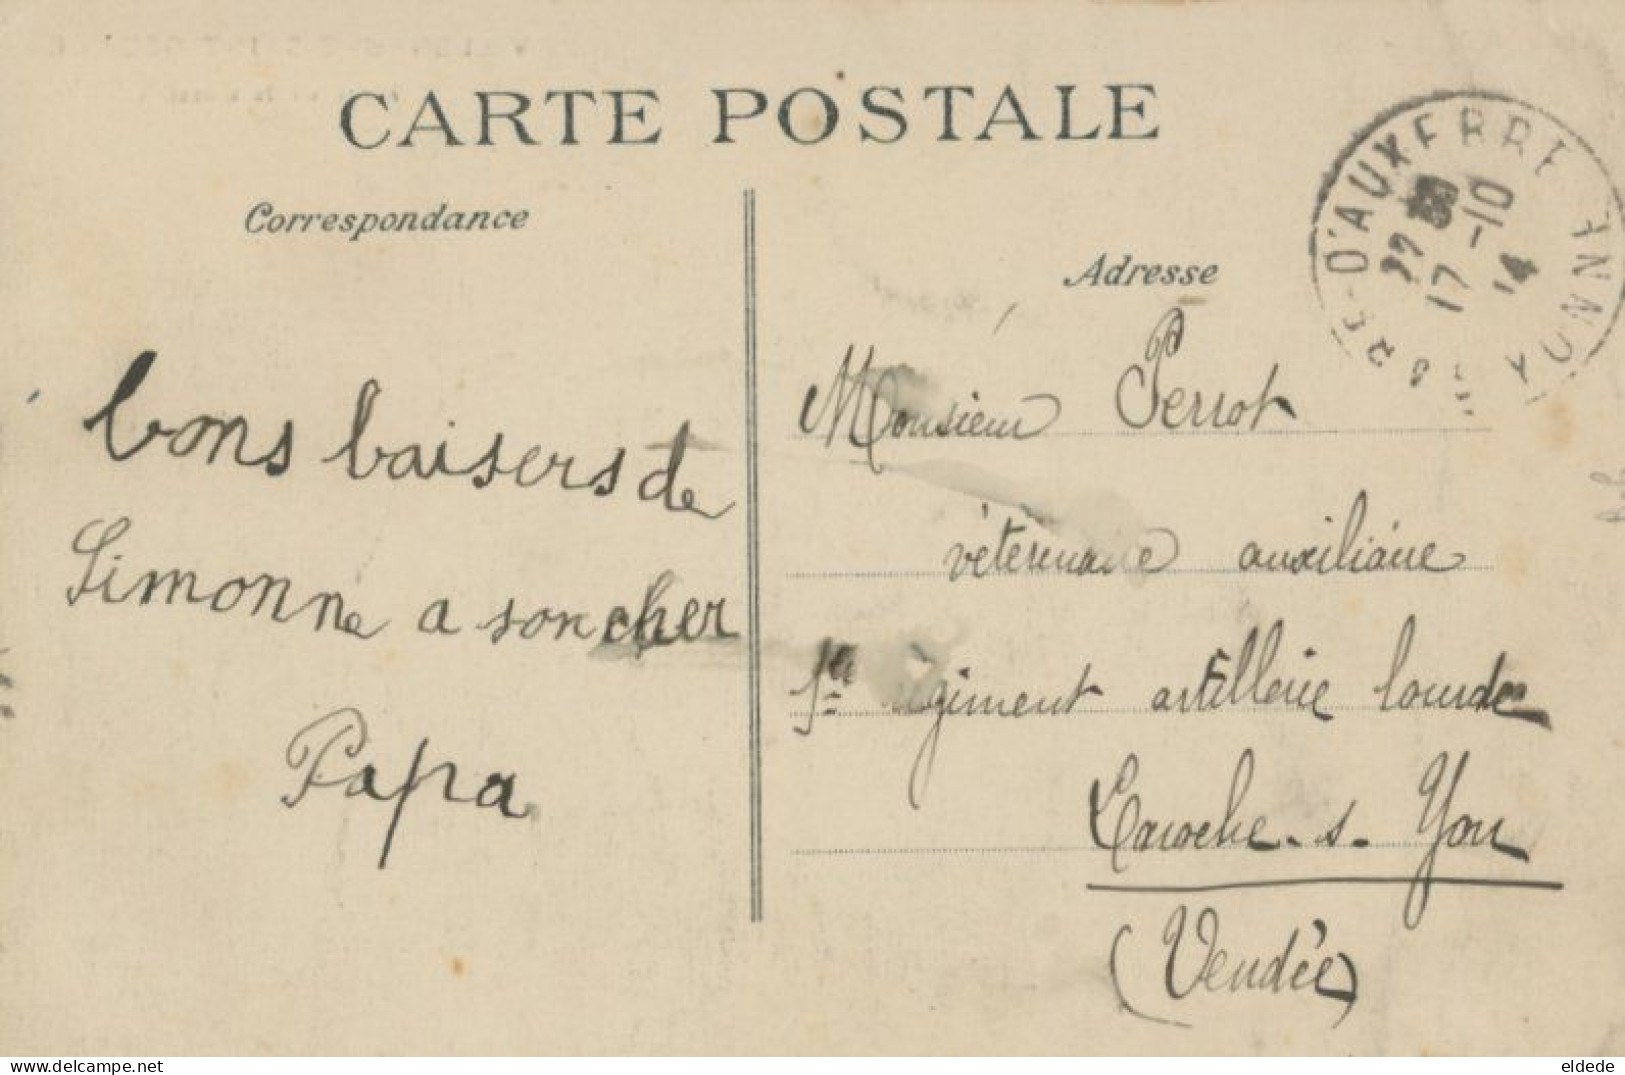 CARTE POSTALE
Correspondance
Adresse
D'AUXERRE YONNE
17 -10
14
bons baisers de
Simonne a son cher
Papa
Monsieur Perrot
véterinaire auxiliaire
1er régiment artillerie lourde
Laroche-s-Yon
(Vendée)
eldede